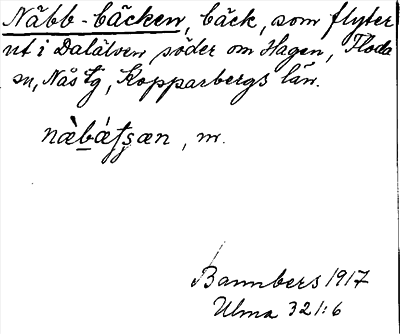 Näbb-bäcken, bäck, som flyter
ut i Dalälven söder om Hagen, Floda
sn, Nås tg, Kopparbergs län.
nœ̀bǽʈʂœn, m.
Bannbers 1917
Ulma 321:6